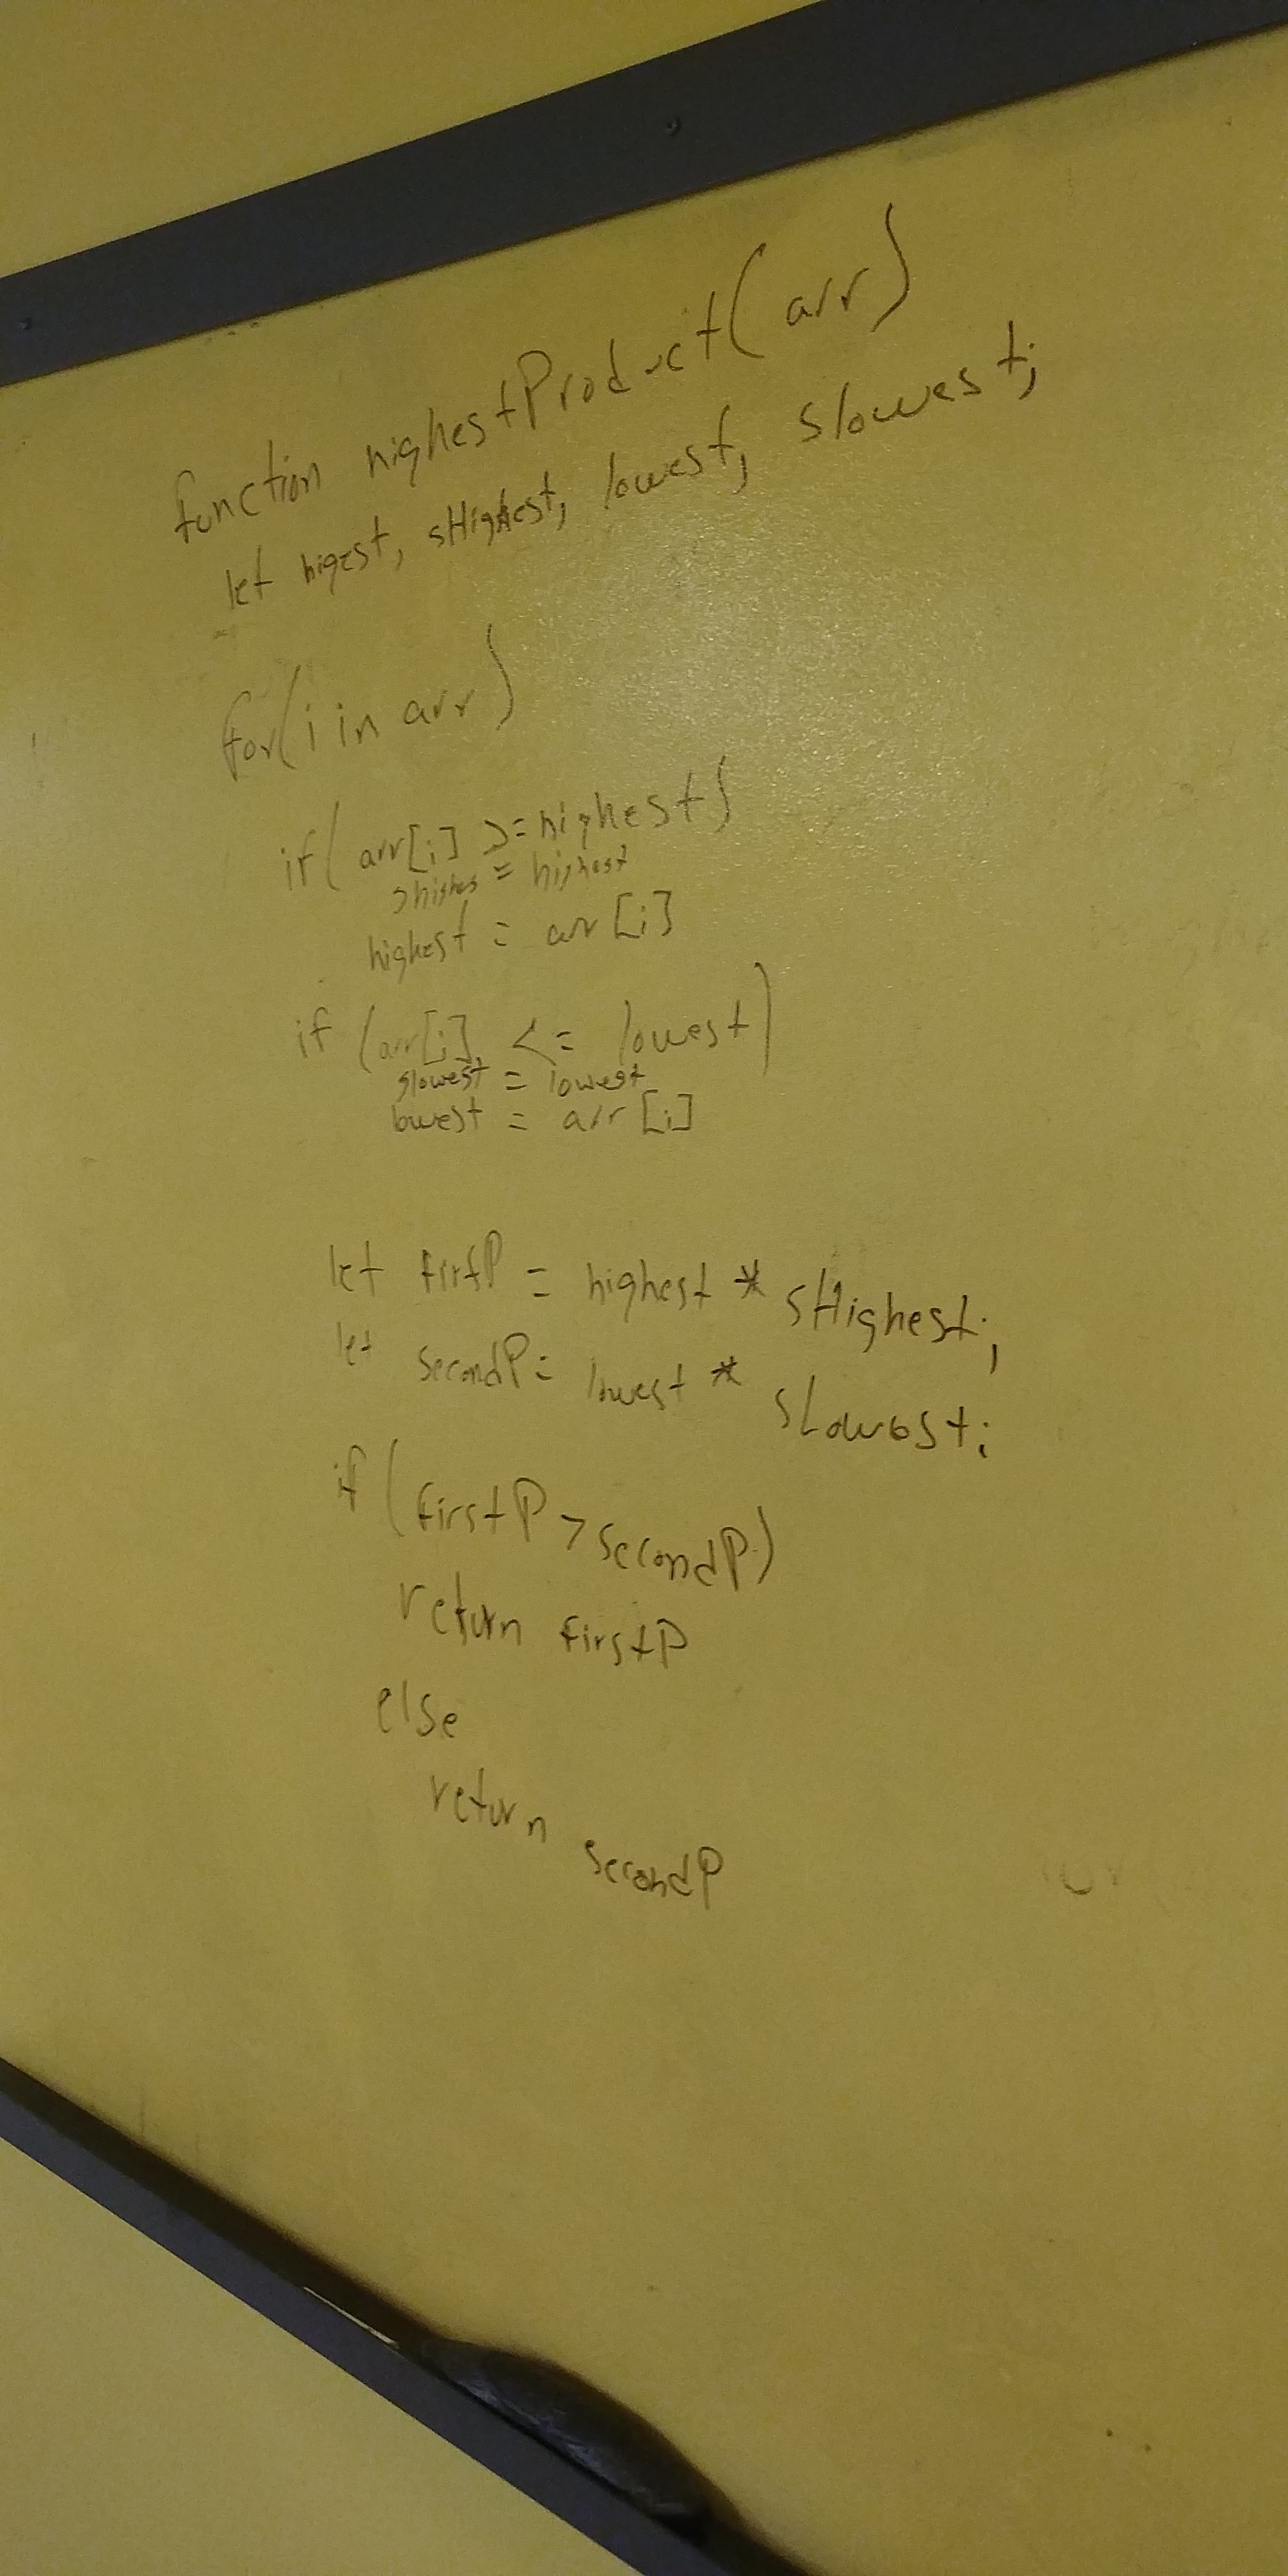 function highestProduct(arr)
let higest, sHighest, lowest, slowest;
for(i in arr)
if( arr[i] >= highest)
shighes = highest
highest = arr[i]
if (arr[i] <= lowest)
slowest = lowest
lowest = arr[i]
let firtP = highest * sHighest;
let secondP = lowest * sLowest;
if (firstP > secondP)
return firstP
else
return secondP